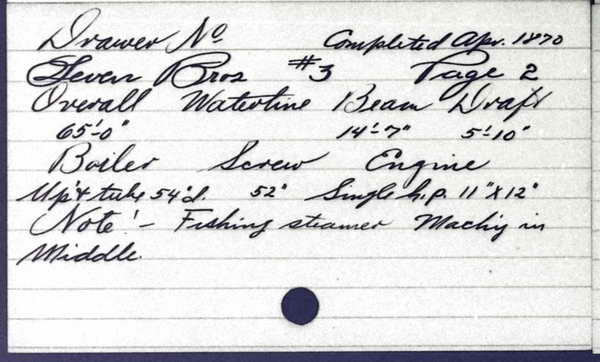 Drawer No. Completed Apr. 1870
Seven Bros #3 Page 2
Overall Waterline Beam Draft
65'-0" 14'-7" 5'-10"
Boiler Screw Engine
Up't tube 54"d. 52" Single h.p. 11" x 12"
Note! - Fishing steamer Mach'y in
Middle.